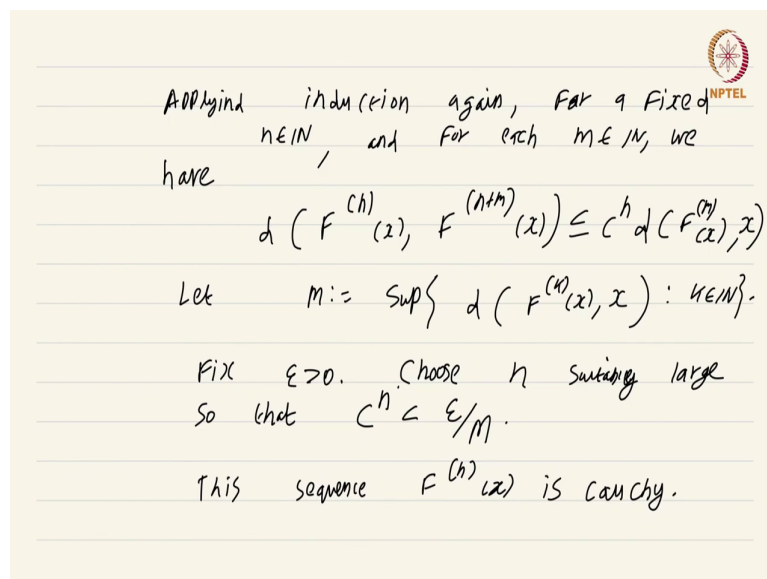 NPTEL
Applyind induction again, For a Fixed
n∈IN, and For each m∈IN, we
have
d(F^(n)(x), F^(n+m)(x)) ≤ C^n d(F^(m)(x), x)
Let M := Sup{ d(F^(k)(x), x) : k∈IN}.
Fix ε>0. Choose n suitably large
So that C^n < ε/M.
This sequence F^(n)(x) is cauchy.